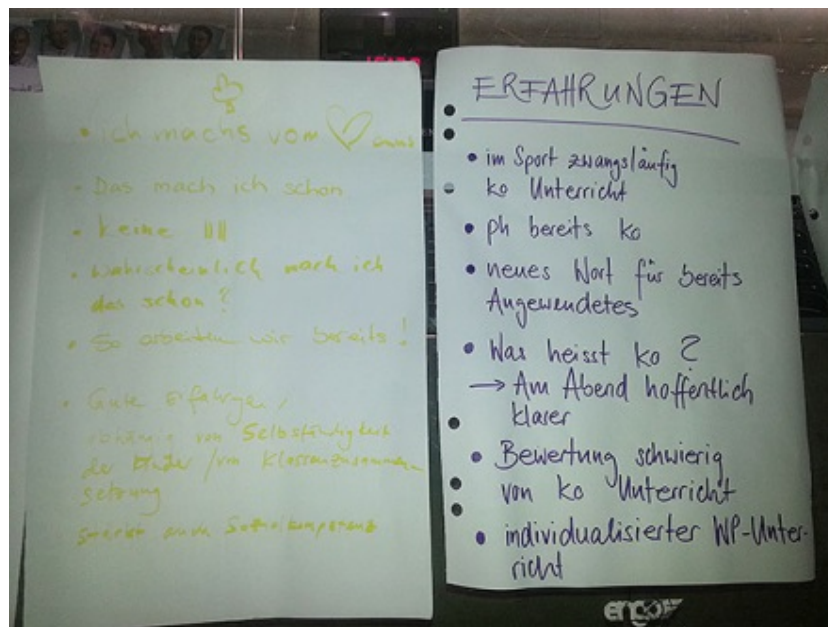 • ich machs vom ♡ aus
• Das mach ich schon
• keine
• wahrscheinlich mach ich
das schon?
• So arbeiten wir bereits!
• Gute Erfahrungen,
abhängig von Selbständigkeit
der Kinder / von Klassenzusammen-
setzung
stärkt auch Sozialkompetenz
ERFAHRUNGEN
• im Sport zwangsläufig
ko Unterricht
• ph bereits ko
• neues Wort für bereits
Angewendetes
• Was heisst ko?
→ Am Abend hoffentlich
klarer
• Bewertung schwierig
von ko Unterricht
• individualisierter WP-Unter-
richt